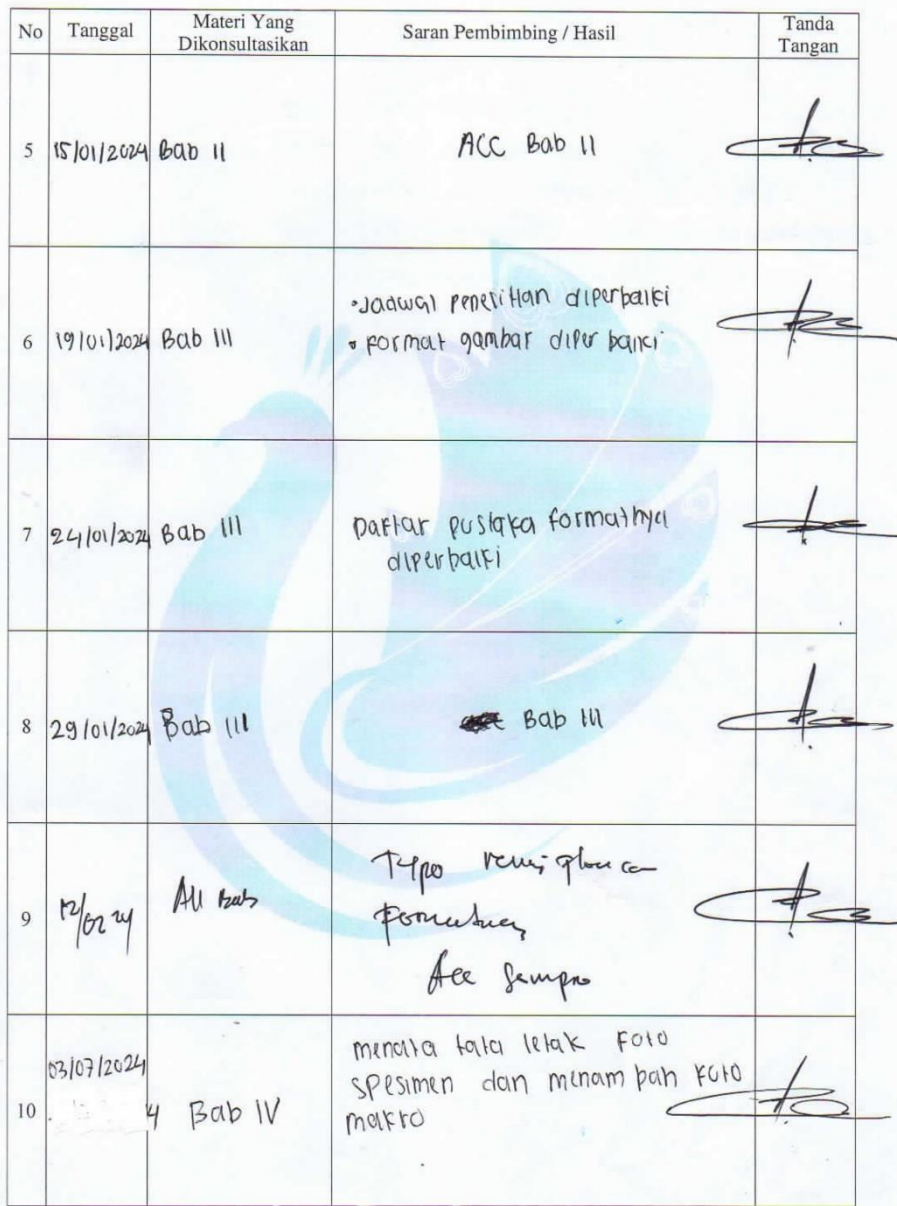 No Tanggal Materi Yang Dikonsultasikan Saran Pembimbing / Hasil Tanda Tangan
5 15/01/2024 Bab II ACC Bab II
6 19/01/2024 Bab III • Jadwal penelitian diperbaiki
• Format gambar diperbaiki
7 24/01/2024 Bab III Daftar pustaka formatnya
diperbaiki
8 29/01/2024 Bab III Bab III
9 12/02 24 All Bab Typo
Acc Sempro
03/07/2024 menata tata letak Foto
spesimen dan menambah Foto
10 4 Bab IV makro